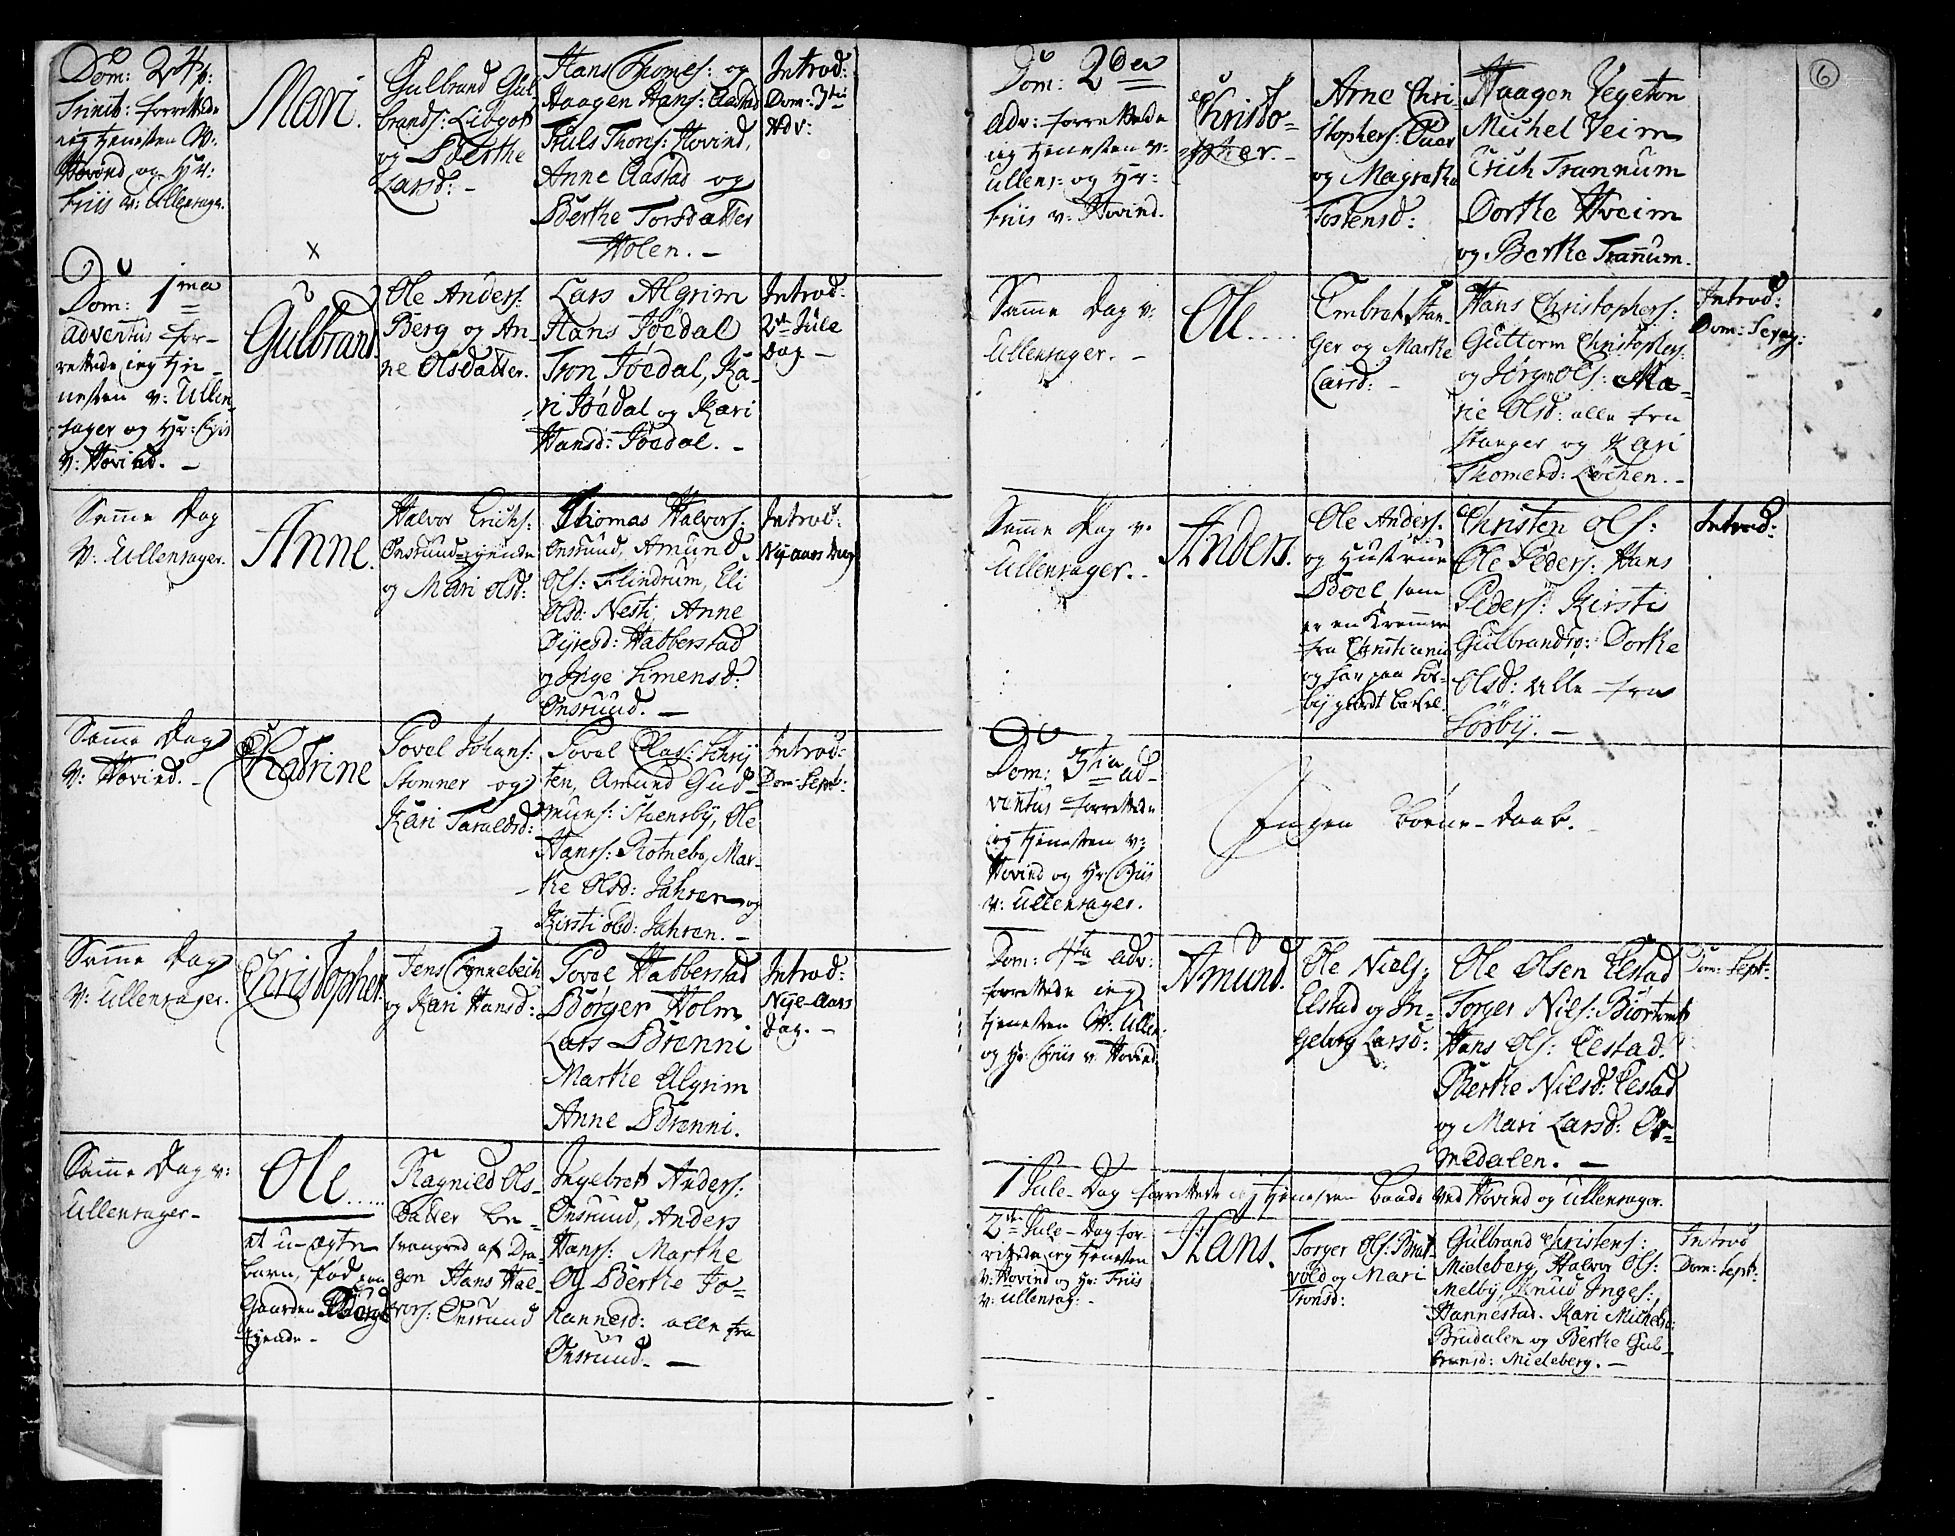 Dom: 24 p:
Trinit: forrettede
ieg tienesten v:
Hovind og Hr:
Friis v: Ullensager.
Mari.
Gulbrand Gul
brands: Libgot
og Berthe
Larsd: -
Hans Thomes: og
Haagen Hans: Aastad
Truls Thors: Hovind,
Anne Aastad og
Berthe Torsdatter
Holen. -
Introd:
Dom: 3tia
Adv:
Dom: 1ma
Adventus for-
rettede ieg tie-
nesten v: Ullen-
sager og Hr: Friis
v: Hovind. -
Gulbrand.
Ole Anders:
Berg og An-
ne Olsdatter.
Lars Algrim
Hans Jöedal
Tron Jöedal, Ka-
ri Jöedal og Kari
Hansd: Jöedal. -
Introd:
2den Jule
Dag -
Samme Dag
v: Ullensager.
Anne.
Halvor Erichs:
Onsrund-eyende
og Mari Olsd:
Thomas Halvors:
Onsrund, Amund
Ols: Flindrum, Eli
Olsd: Nesti, Anne
Dyresd: Habberstad
og Inge Simensd:
Onsrund. -
Introd:
Nye-aars Dag
Samme Dag
v: Hovind. -
Katrine
Povel Johans:
Stomner og
Kari Taraldsd:
Povel Clas: Schrij
ten, Amund Gud-
muns: Stensby, Ole
Hans: Rotnebo, Mar-
the Olsd: Jahren og
Kirsti Olsd: Jahren. -
Introd:
Dom: Sept:
Samme Dag
v: Ullensager.
Christopher.
Jens Fynnebech
og Kari Hansd:
Povel Habberstad
Börger Holm
Lars Brenni
Marthe Algrim
Anne Brenni.
Introd:
Nye-Aars
Dag. -
Samme Dag v:
Ullensager -
Ole.....
et u-ægte
barn, föd paa
Gaarden Borge
eyende -
Ragnild Ols-
datter be-
svangred af Dra-
gon Hans Hal-
vors: Onsrund
Ingebret Anders:
Onsrund, Anders
Hans: Marthe
Og Berthe Jo-
hannesd: alle fra
Onsrund. -
6
Dom: 2den
Adv: forrettede
ieg tienesten v:
Ullens: og Hr:
Friis v: Hovind.
Christo-
pher. -
Arne Chri-
stophers:
og Magrethe
Tostensd:
Haagen Vegeton
Michel Veim
Erich Trannum
Dorthe Hveim
og Berthe Trannum.
Samme Dag v:
Ullensager. -
Ole.....
Embret Stan-
ger og Marthe
Larsd: -
Hans Christophers:
Guttorm Christophers:
og Jörgen Ols: Ma-
rie Olsd: alle fra
Stanger og Kari
Thomesd: Löchen. -
Introd:
Dom: Sexag:
Samme Dag v.
Ullensager. -
Anders.
Ole Anders:
og Hustrue
Boel, som
er en Kremmer
fra Christiania
og har paa Sör-
by giordt barsel.
Christen Ols:
Ole Peders: Hans
Peders: Kirsti
Gulbrands: Dorthe
Olsd: Alle fra
Sörby. -
Introd:
Dom: 3tia ad-
ventus forrettede
ieg tienesten v:
Hovind og Hr Friis
v: Ullensager.
Ingen börne-daab. -
Dom: 4ta adv:
forrettede ieg
tienesten v: Ullen:
og Hr: Friis v. Hovind
Amund.
Ole Niels:
Elstad og In-
geborg Larsd:
Ole Olsen Elstad
Torger Niels: Biörtomt
Hans Ols: Elstad.
Berthe Nielsd: Elstad
og Mari Larsd: Or-
medalen. -
Dom: Sept:
1 Jule-Dag forrettede ieg tienesten baade ved Hovind og Ullensager.
2den Jule-Dag for-
rettede ieg tienesten
v: Hovind og Hr: Friis
v: Ullensag: -
Hans.
Torger Ols: Brat-
vold og Mari
Tronsd:
Gulbrand Christens:
Mieleberg, Halvor Ols:
Melby, Knud Inges:
Hannestad. Kari Michelsd:
Brudalen og Berthe Gul-
bransd: Mieleberg. -
Introd
Dom: Sept: